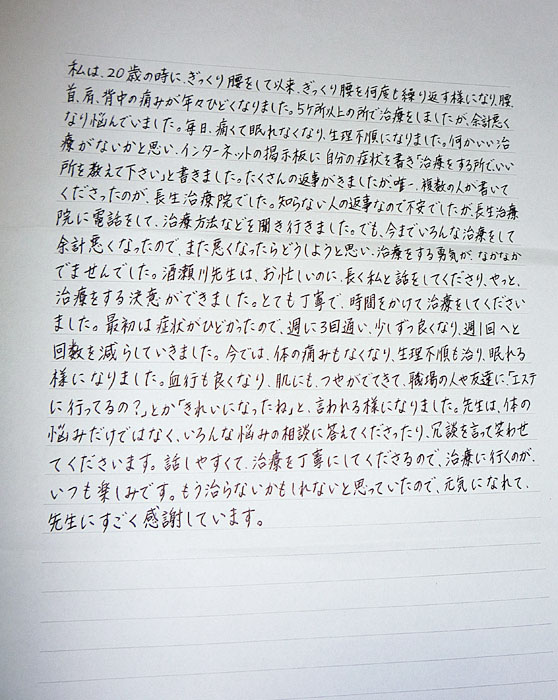 私は、20歳の時に、ぎっくり腰をして以来、ぎっくり腰を何度も繰り返す様になり、腰、
首、肩、背中の痛みが年々ひどくなりました。5ケ所以上の所で治療をしましたが、余計悪く
なり悩んでいました。毎日、痛くて眠れなくなり、生理不順になりました。何かいい治
療がないかと思い、インターネットの掲示板に自分の症状を書き「治療をする所でいい
所を教えて下さい」と書きました。たくさんの返事がきましたが、唯一、複数の人が書いて
くださったのが、長生治療院でした。知らない人の返事なので不安でしたが、長生治療
院に電話をして、治療方法などを聞き行きました。でも、今までいろんな治療をして
余計悪くなったので、また悪くなったらどうしようと思い、治療をする勇気が、なかなか
でませんでした。酒瀬川先生は、お忙しいのに、長く私と話をしてくださり、やっと、
治療をする決意ができました。とても丁寧で、時間をかけて治療をしてください
ました。最初は症状がひどかったので、週に3回通い、少しずつ良くなり、週1回へと
回数を減らしていきました。今では、体の痛みもなくなり、生理不順も治り、眠れる
様になりました。血行も良くなり、肌にも、つやがでてきて、職場の人や友達に、「エステ
に行ってるの?」とか「きれいになったね」と、言われる様になりました。先生は、体の
悩みだけではなく、いろんな悩みの相談に答えてくださったり、冗談を言って笑わせ
てくださいます。話しやすくて、治療を丁寧にしてくださるので、治療に行くのが、
いつも楽しみです。もう治らないかもしれないと思っていたので、元気になれて、
先生にすごく感謝しています。